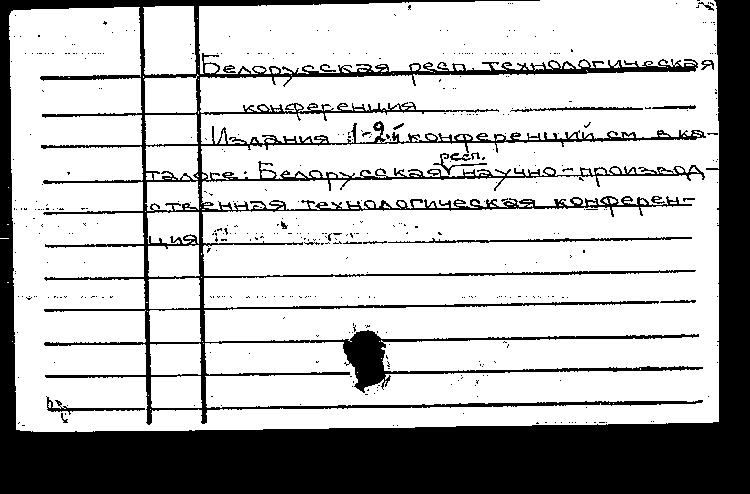 Белорусская респ. технологическая
конференция
Издания 1-2й конференций см. в ка-
талоге: Белорусская респ. научно-производ-
ственная технологическая конферен-
ция